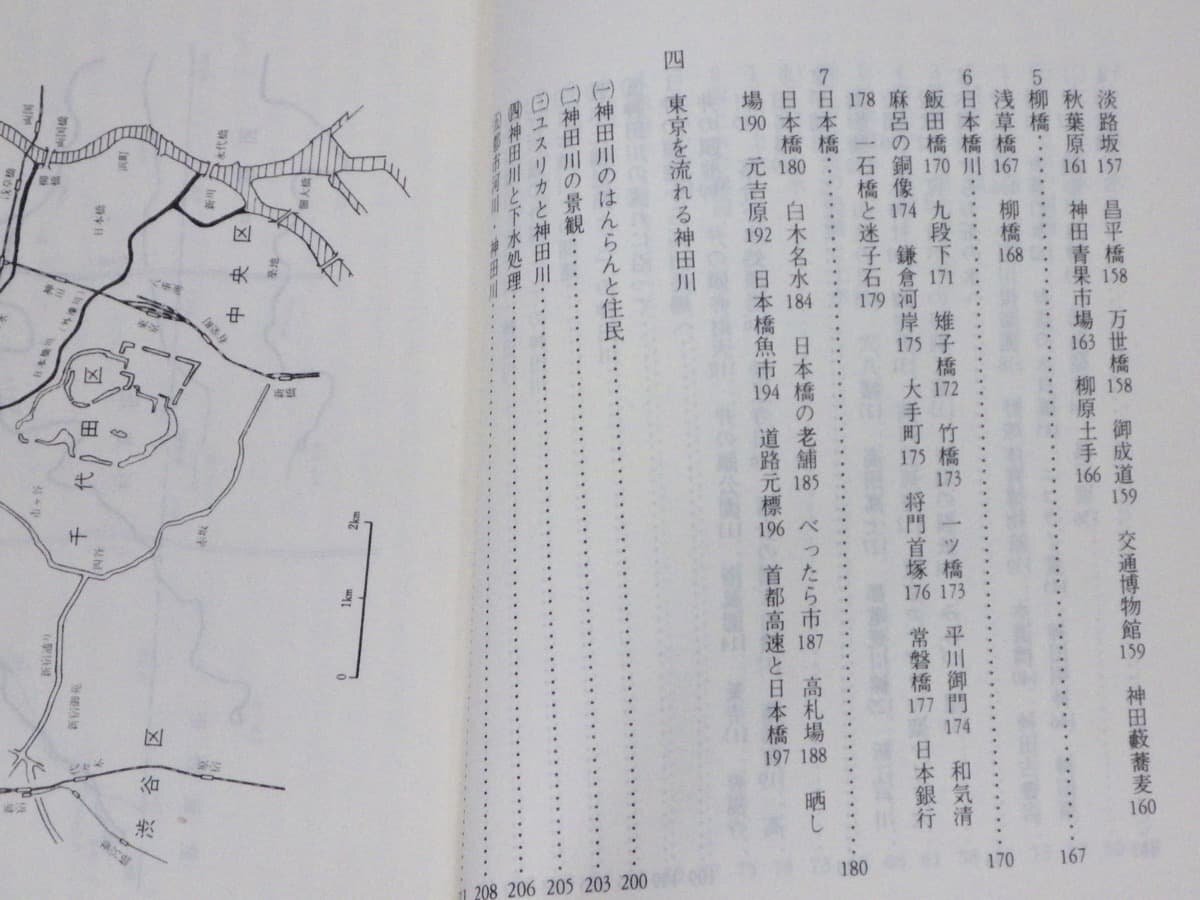 淡路坂157 昌平橋158 万世橋158 御成道159 交通博物館159 神田藪蕎麦160
秋葉原161 神田青果市場163 柳原土手166
5 柳橋……167
浅草橋167 柳橋168
6 日本橋川……170
飯田橋170 九段下171 雉子橋172 竹橋173 一ツ橋173 平川御門174 和気清
麻呂の銅像174 鎌倉河岸175 大手町175 将門首塚176 常磐橋177 日本銀行
178 一石橋と迷子石179
7 日本橋……180
日本橋180 白木名水184 日本橋の老舗185 べったら市187 高札場188 晒し
場190 元吉原192 日本橋魚市194 道路元標196 首都高速と日本橋197
四 東京を流れる神田川
㈠神田川のはんらんと住民……200
㈡神田川の景観……203
㈢ユスリカと神田川……205
㈣神田川と下水処理……206
㈤都市河川・神田川……208
両国
両国橋
柳橋
浅草橋
浜町
日本橋
永代橋
新川
中央区
築地
有楽町
新橋
日本橋川
千代田区
市ヶ谷
四谷
赤坂
新宿通り
新宿御苑
代々木
原宿
渋谷区
2km
1km
0